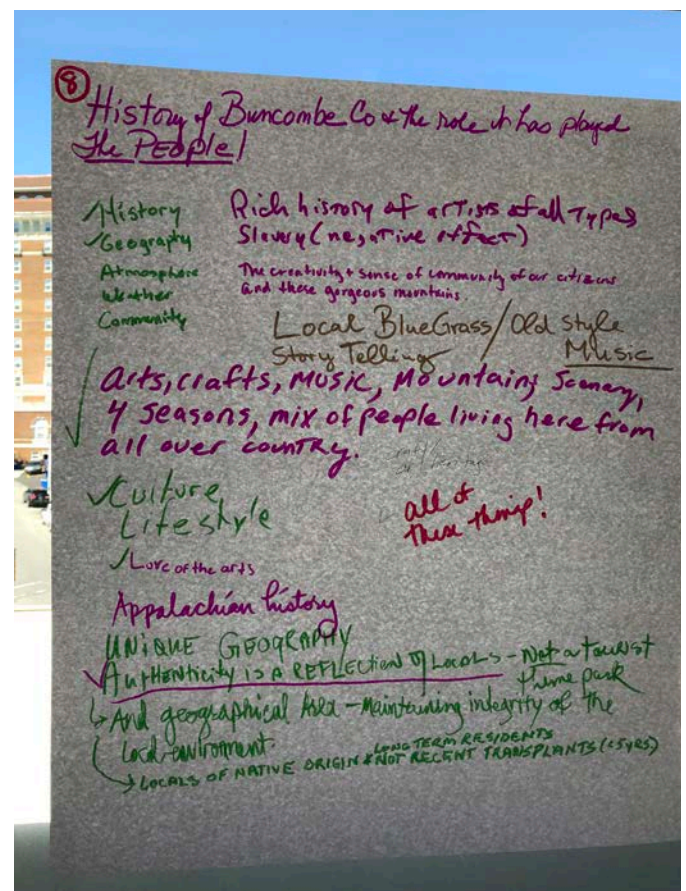 8
History of Buncombe Co & the role it has played
The People!
History
Geography
Atmosphere
Weather
Community
Rich history of artists of all types
Slavery (negative effect)
The creativity + sense of community of our citizens
and these gorgeous mountains.
Local BlueGrass/Old style
Story Telling Music
Arts, crafts, music, Mountains Scenery,
4 seasons, mix of people living here from
all over country.
Culture,
Lifestyle
all of
these things!
Love of the arts
Appalachian history
UNIQUE GEOGRAPHY
AutHenticity is A REFLECTion of Locals - Not a tourist
theme park
And geographical Area - Maintaining integrity of the
Local environment.
LOCALS OF NATIVE ORIGIN & LONG TERM RESIDENTS
NOT RECENT TRANSPLANTS (<5YRS)